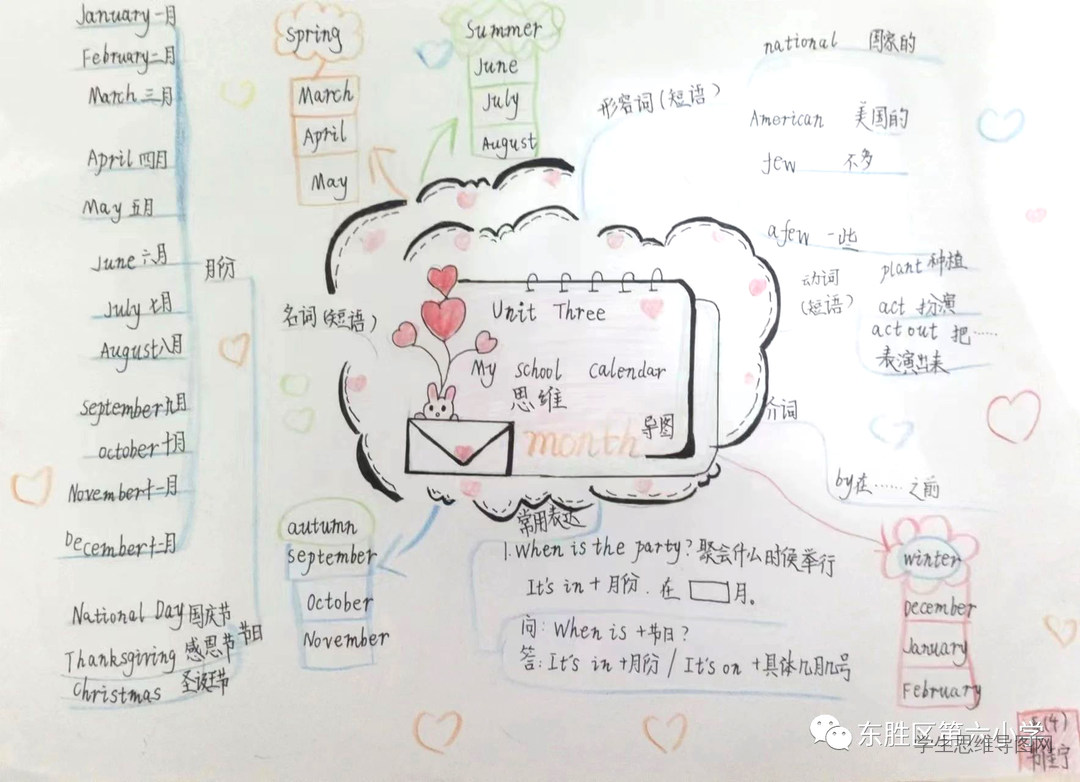 January 一月
February 二月
March 三月
April 四月
May 五月
June 六月
July 七月
August 八月
September 九月
october 十月
November 十一月
December 十二月
月份
National Day 国庆节
Thanksgiving 感恩节
Christmas 圣诞节
节日
名词(短语)
spring
March
April
May
Summer
June
July
August
形容词(短语)
national 国家的
American 美国的
few 不多
afew 一些
动词
(短语)
plant 种植
act 扮演
act out 把……
表演出来
介词
by在……之前
Unit Three
My school calendar
思维
导图
month
autumn
september
October
November
常用表达
1.When is the party? 聚会什么时侯举行
It's in + 月份. 在 月。
问: When is +节日?
答: It's in +月份 / It's on +具体几月几号
winter
December
January
February
东胜区第六小学
学生思维导图网